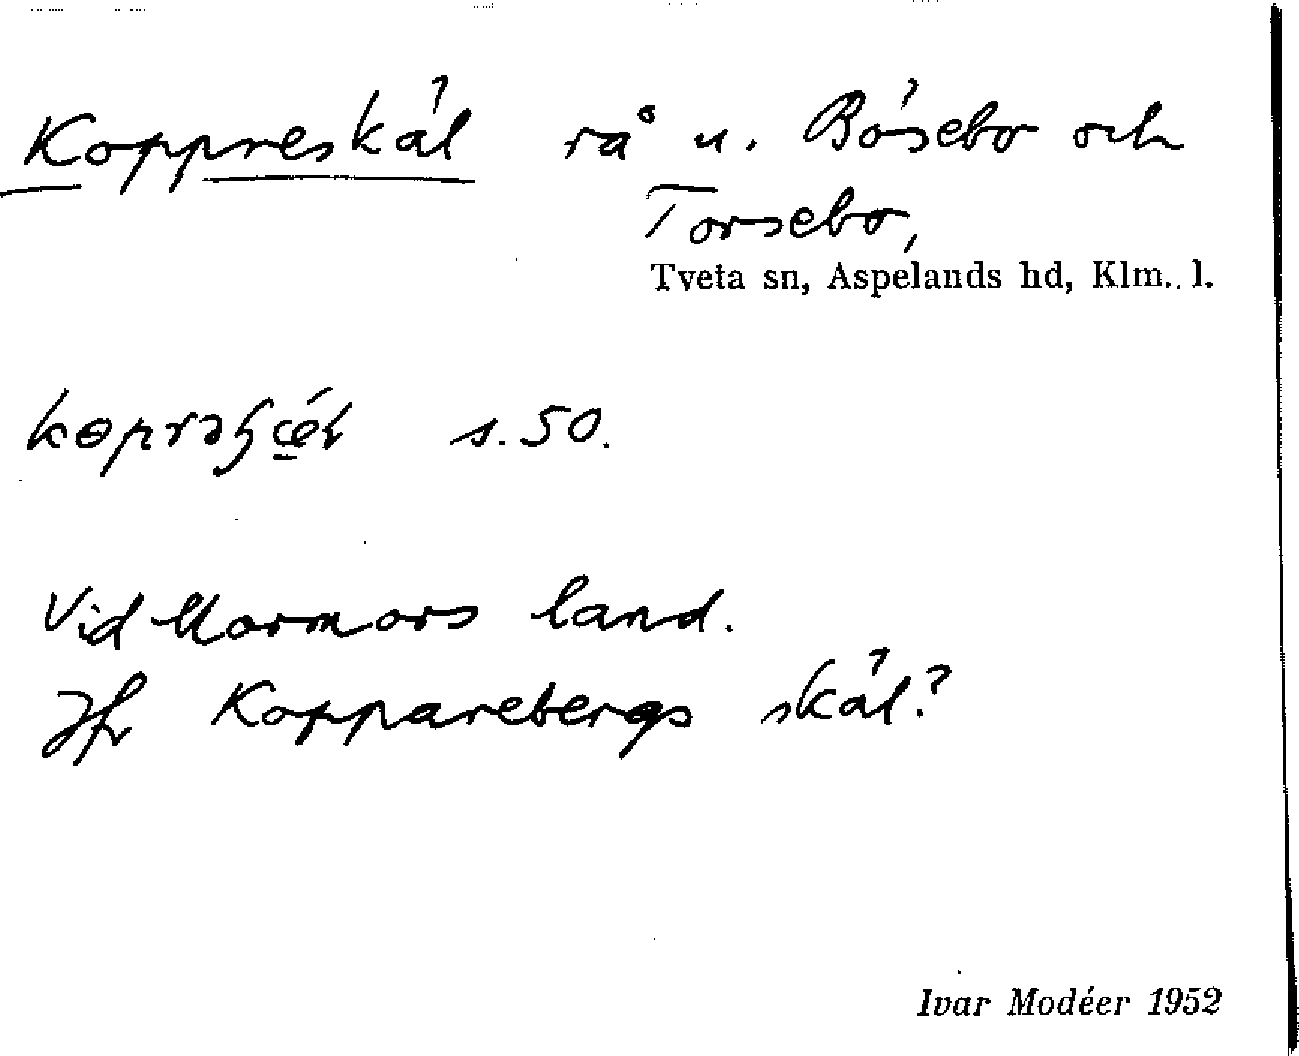 Koppreskål rå u. Båsebo och
Torsebo,
Tveta sn, Aspelands hd, Klm. l.
s. 50.
Vid Mormors land.
Jfr Kopparebergs skål?
Ivar Modéer 1952